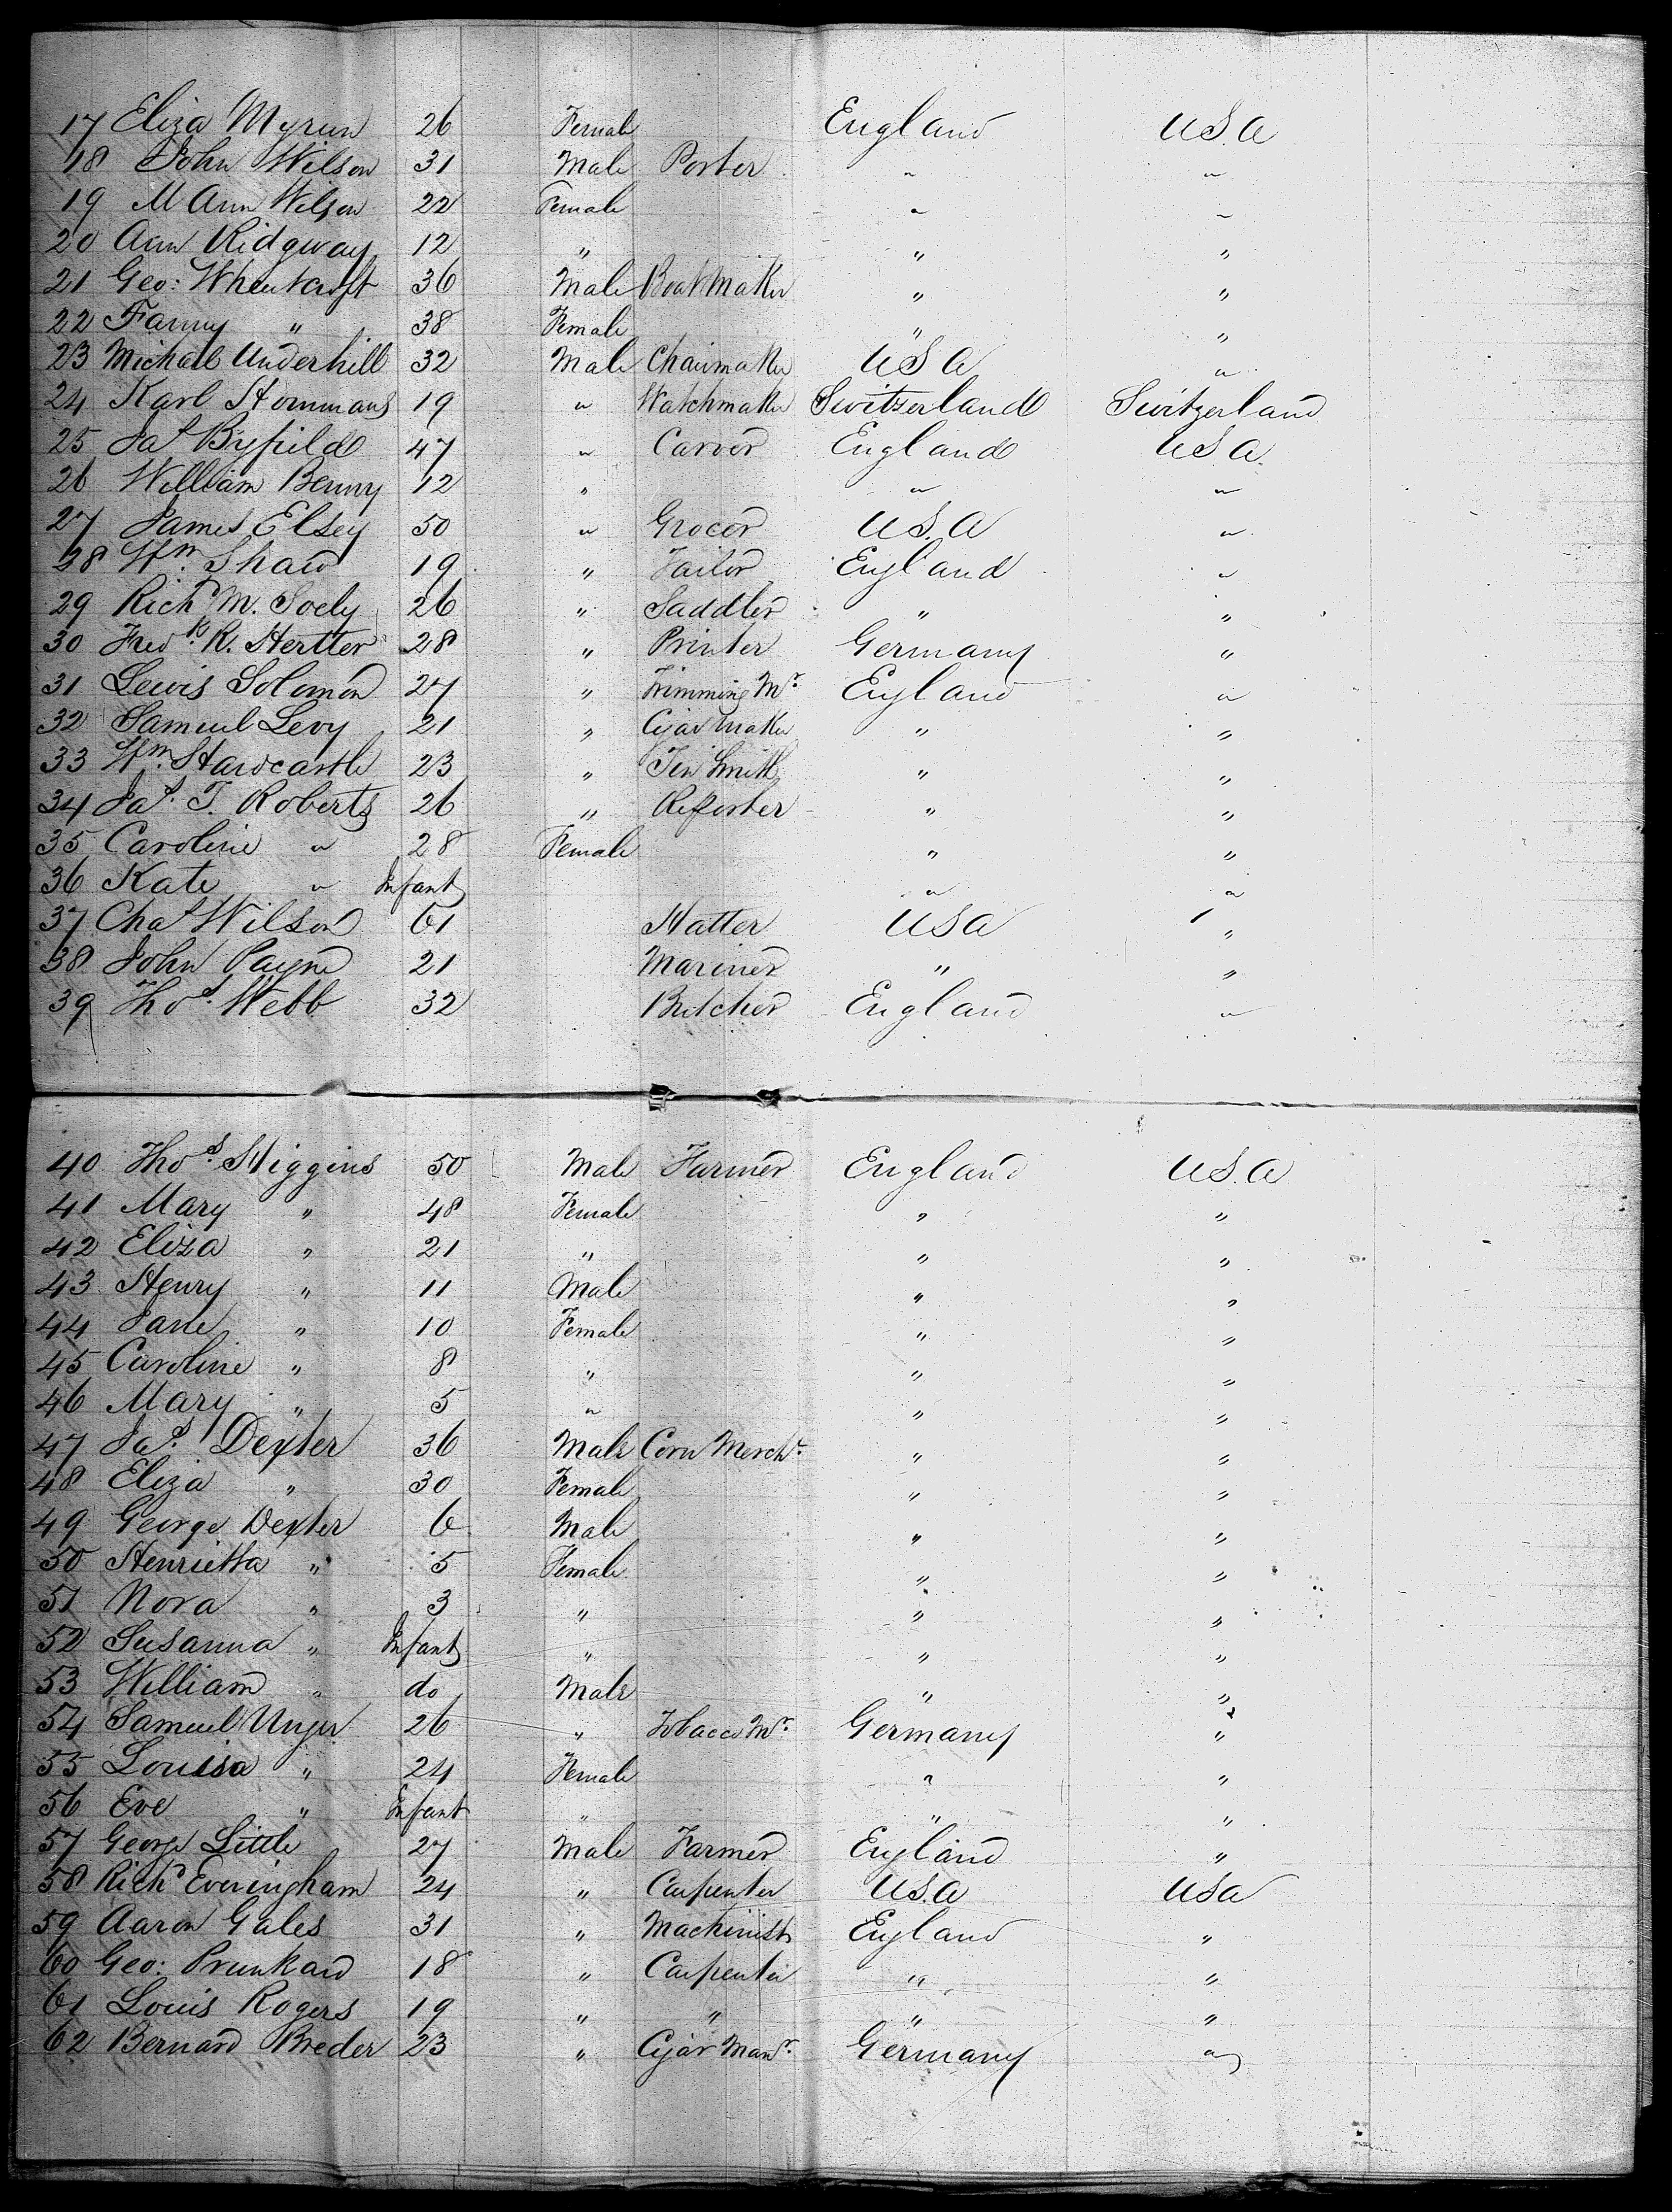 17 Eliza Myrun 26 Female England U.S.A
18 John Wilson 31 Male Porter " "
19 M Ann Wilson 22 Female " "
20 Ann Ridgway 12 " " "
21 Geo: Wheatcroft 36 Male Bootmaker " "
22 Fanny " 38 Female " "
23 Michael Underhill 32 Male Chairmaker U S A "
24 Karl 19 " Watchmaker Switzerland Switzerland
25 Jas Byfield 47 " Carver England U S A
26 William Benny 12 " " "
27 James Elsey 50 " Grocer U.S.A "
28 Wm. Shaw 19 " Tailor England "
29 Richd M. Soely 26 " Saddler " "
30 Fredk. R. Hertter 28 " Printer Germany "
31 Lewis Solomon 27 " Trimming Mr. England "
32 Samuel Levy 21 " Cigar Maker " "
33 Wm. Hardcastle 23 " Tin Smith " "
34 Jas. T. Roberts 26 " Reporter " "
35 Caroline " 28 Female " "
36 Kate " Infant " "
37 Chas Wilson 61 Hatter USA "
38 John Payne 21 Mariner " "
39 Thos. Webb 32 Butcher England "
40 Thos. Higgins 50 Male Farmer England U.S.A
41 Mary " 48 Female " "
42 Eliza " 21 " " "
43 Henry " 11 Male " "
44 Jane " 10 Female " "
45 Caroline " 8 " " "
46 Mary " 5 " " "
47 Jas. Dexter 36 Male Corn Mercht. " "
48 Eliza " 30 Female " "
49 George Dexter 6 Male " "
50 Henrietta " 5 Female " "
51 Nora " 3 " " "
52 Susanna " Infant " " "
53 William " do Male " "
54 Samuel Unger 26 " Tobacco Mr. Germany "
55 Louisa " 24 Female " "
56 Eve " Infant " " "
57 George Little 27 Male Farmer England "
58 Richd Everingham 24 " Carpenter U.S.A USA
59 Aaron Gales 31 " Machinist England "
60 Geo: Prunkard 18 " Carpenter " "
61 Louis Rogers 19 " " " "
62 Bernard Breder 23 " Cigar Manr. Germany "